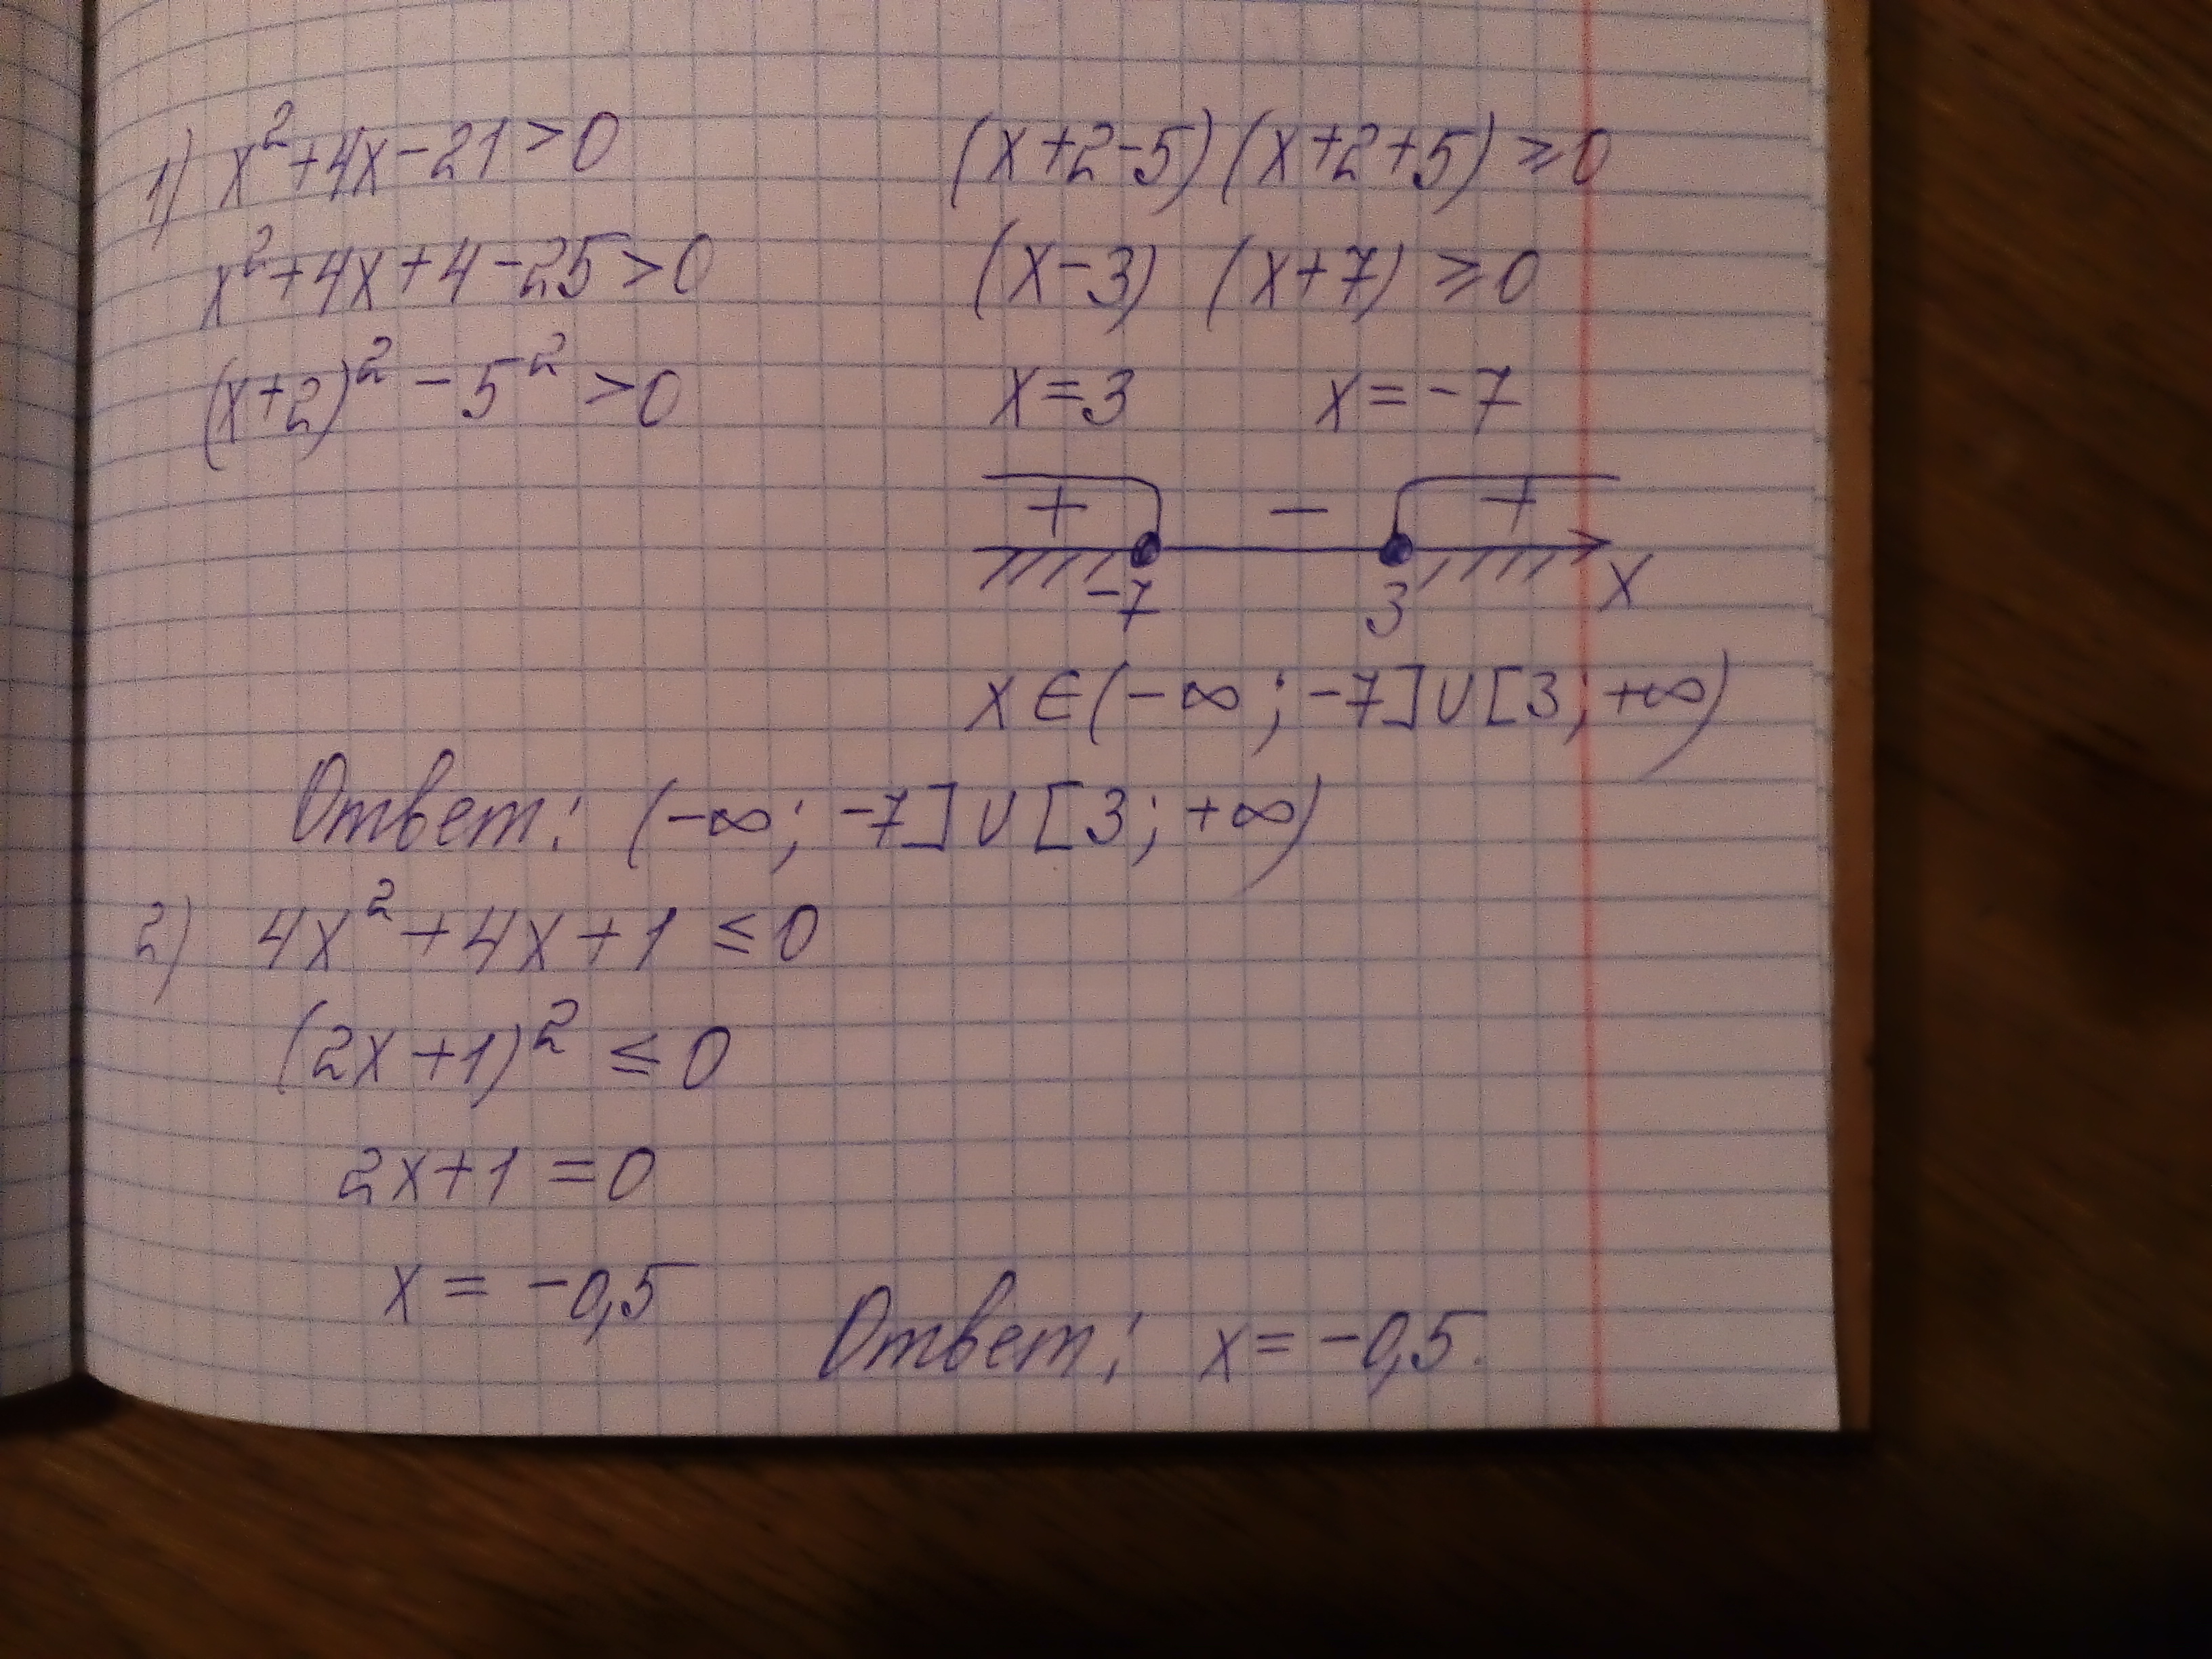 1) x²+4x-21>0
x²+4x+4-25>0
(x+2)²-5²>0
(x+2-5)(x+2+5)⩾0
(x-3) (x+7)⩾0
x=3 x=-7
+ - +
-7 3 x
x∈(-∞;-7]∪[3;+∞)
Ответ: (-∞;-7]∪[3;+∞)
2) 4x²+4x+1≤0
(2x+1)²≤0
2x+1=0
x=-0,5
Ответ: x=-0,5.